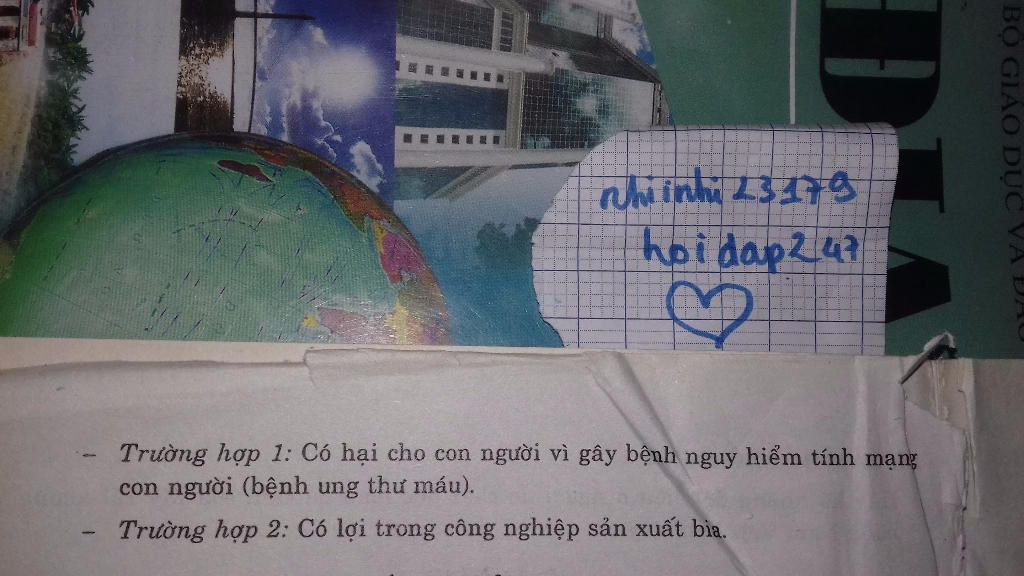 BỘ GIÁO DỤC VÀ ĐÀO
ĐỊA
nhiinhi23179
hoidap247
– Trường hợp 1: Có hại cho con người vì gây bệnh nguy hiểm tính mạng
con người (bệnh ung thư máu).
– Trường hợp 2: Có lợi trong công nghiệp sản xuất bia.